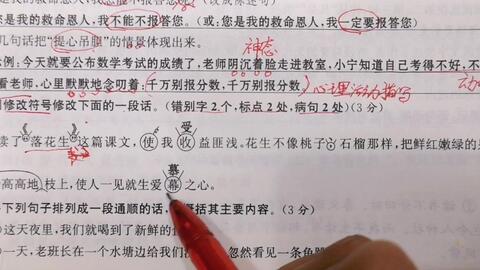 您是我的救命恩人,我不能不报答您。(或:您是我的救命恩人,我一定要报答您)
几句话把"提心吊胆"的情景体现出来。
神态
示例:今天就要公布数学考试的成绩了,老师阴沉着脸走进教室,小宁知道自己考得不好,不
看老师,心里默默地念叨着:千万别报分数,千万别报分数!
心理活动描写
动
用修改符号修改下面的一段话。(错别字2个,标点2处,病句2处)(3分)
受
读了"落花生"这篇课文,使我收益匪浅。花生不像桃子、石榴那样,把鲜红嫩绿的果
慕
高高地 枝上,使人一见就生爱幕之心。
下列句子排列成一段通顺的话,概括其主要内容。(3分)
这天夜里,我们就喝到了新鲜的
一天,老班长在一个水塘边给我们 忽然看见一条鱼跳